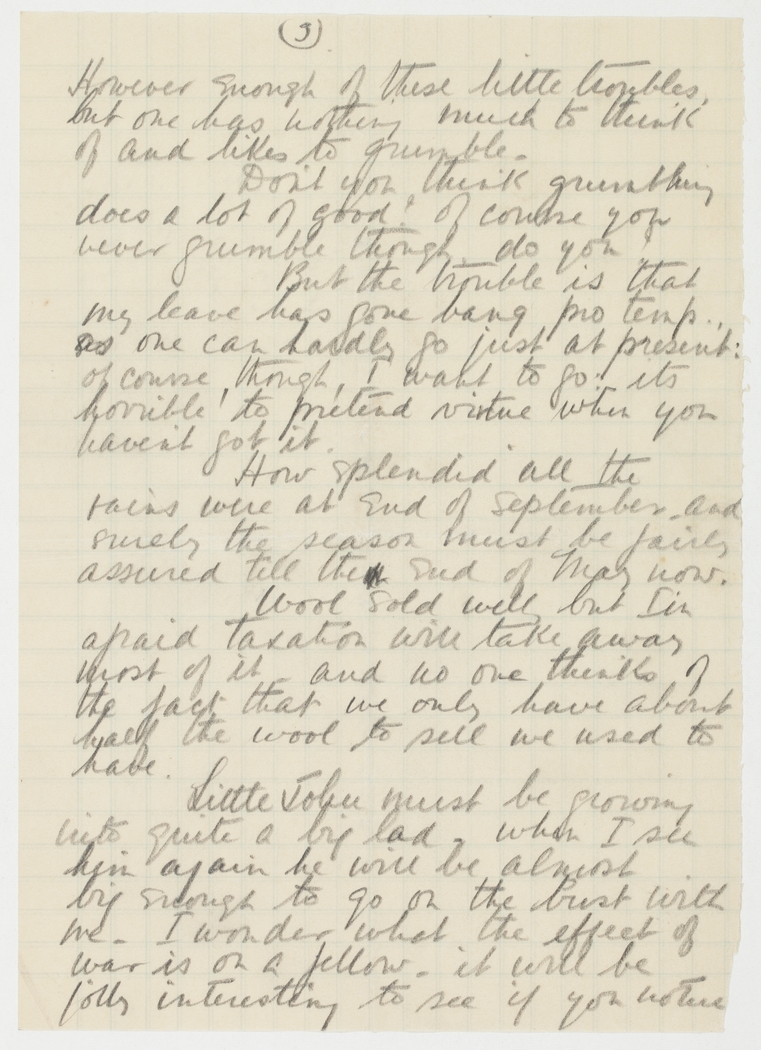 (3)
However enough of these little troubles,
but one has nothing much to think
of and likes to grumble.
Don't you think grumbling
does a lot of good? of course you
never grumble though, do you?
But the trouble is that
my leave has gone bang pro temp.,
as one can hardly go just at present:
of course, though, I want to go: its
horrible! to pretend virtue when you
haven't got it.
How splendid all the
rains were at End of September, and
surely the season must be fairly
assured till the End of May now.
Wool sold well, but I'm
afraid taxation will take away
most of it - and no one thinks of
the fact that we only have about
half the wool to sell we used to
have.
Little John must be growing
into quite a big lad - when I see
him again he will be almost
big enough to go on the bust with
me - I wonder what the effect of
war is on a fellow - it will be
jolly interesting to see if you notice